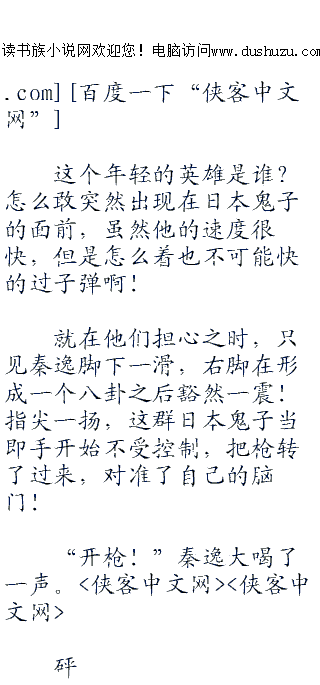 读书族小说网欢迎您！电脑访问www.dushuzu.com
.com][百度一下“侠客中文
网”]
这个年轻的英雄是谁？
怎么敢突然出现在日本鬼子
的面前，虽然他的速度很
快，但是怎么着也不可能快
的过子弹啊！
就在他们担心之时，只
见秦逸脚下一滑，右脚在形
成一个八卦之后豁然一震！
指尖一扬，这群日本鬼子当
即手开始不受控制，把枪转
了过来，对准了自己的脑
门！
“开枪！”秦逸大喝了
一声。<侠客中文网><侠客中
文网>
砰